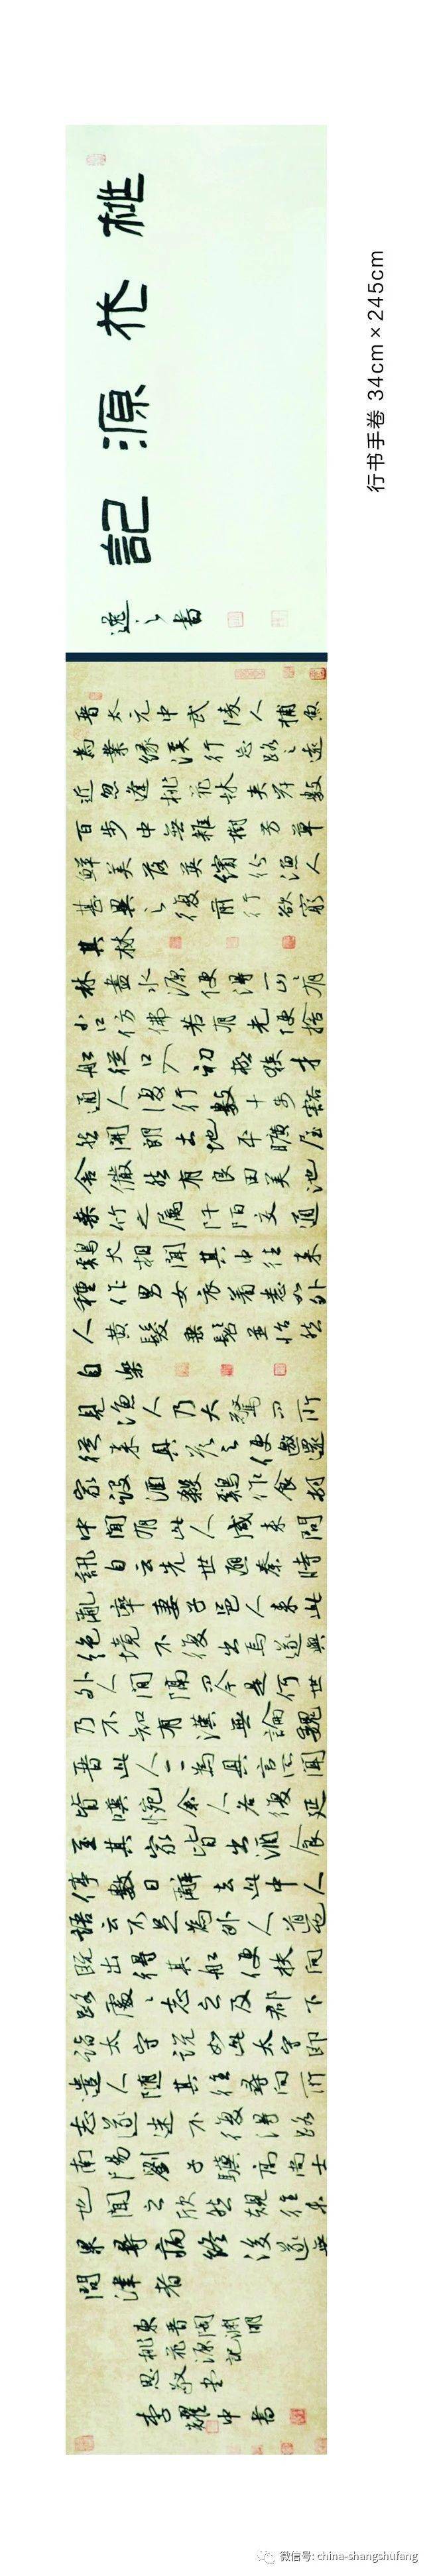 桃花源記
逸之書
行书手卷 34cm×245cm
晋太元中武陵人捕魚
為業緣溪行忘路之遠
近忽逢桃花林夹岸數
百步中無雜樹芳草
鮮美落英繽紛漁人
甚異之復前行欲窮
其林
林盡水源便得一山山有
小口仿佛若有光便捨
船從口入初極狹才
通人復行數十步豁
然開朗土地平曠屋
舍儼然有良田美池
桑竹之屬阡陌交通
鷄犬相聞其中往来
種作男女衣着悉如外
人黄髮垂髫並怡然
自樂
見漁人乃大驚問所
從来具答之便邀還
家設酒殺鷄作食村
中聞有此人咸来問
訊自云先世避秦時
亂率妻子邑人来此
絶境不復出焉遂與
外人間隔問今是何世
乃不知有漢無論魏
晋此人一一為具言所聞
皆嘆惋餘人各復延
至其家皆出酒食
停數日辭去此中人
語云不足為外人道也
既出得其船便扶向
路處處志之及郡下
詣太守説如此太守即
遣人隨其往尋向所
志遂迷不復得路
南陽劉子驥高尚士
也聞之欣然規往未
果尋病終後遂無
問津者
東晋陶淵明
桃花源記
思敬堂
李耀中書
微信号: china-shangshufang